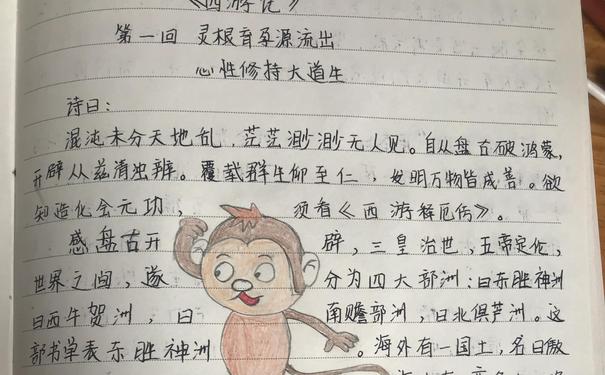 《西游记》
第一回 灵根育孕源流出
心性修持大道生
诗曰：
混沌未分天地乱，茫茫渺渺无人见。自从盘古破鸿蒙，
开辟从兹清浊辨。覆载群生仰至仁，发明万物皆成善。欲
知造化会元功，须看《西游释厄传》。
感盘古开辟，三皇治世，五帝定伦，
世界之间，遂分为四大部洲：曰东胜神洲
曰西牛贺洲，曰南赡部洲，曰北俱芦洲。这
部书单表东胜神洲。海外有一国土，名曰傲